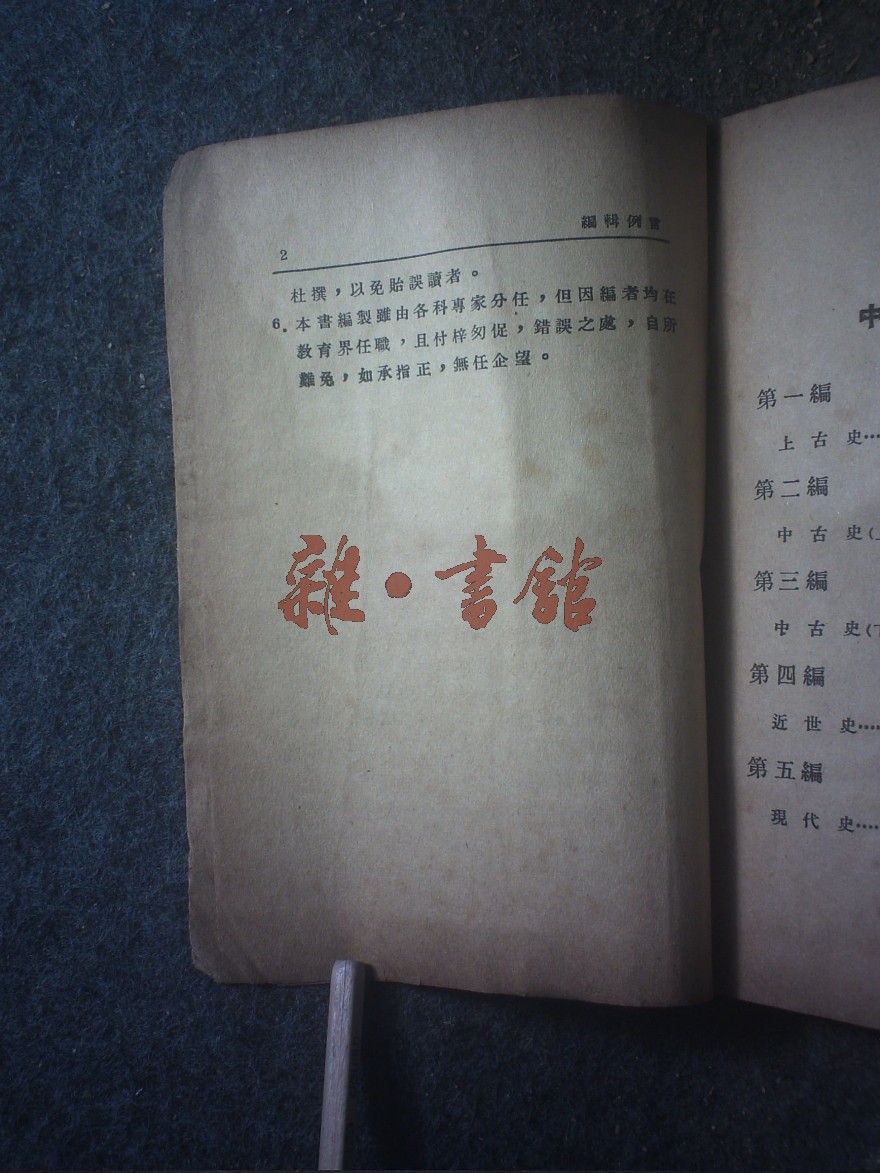 2
編輯例言
杜撰，以免貽誤讀者。
6. 本書編製雖由各科專家分任，但因編者均在
教育界任職，且付梓匆促，錯誤之處，自所
難免，如承指正，無任企望。
雜·書館
中
第一編
上古史……
第二編
中古史(上
第三編
中古史(下
第四編
近世史……
第五編
現代史……